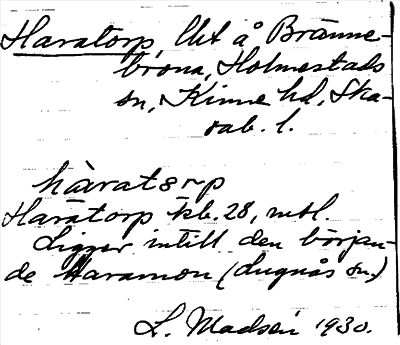 Haratorp, lht å Bränne-
brona, Holmestads
sn, Kinne hd, Ska-
rab. l.
hàratårp
Haratorp kb. 28, mtl.
Ligger intill den början-
de Haramon (Lugnås sn.)
L. Madsén 1930.